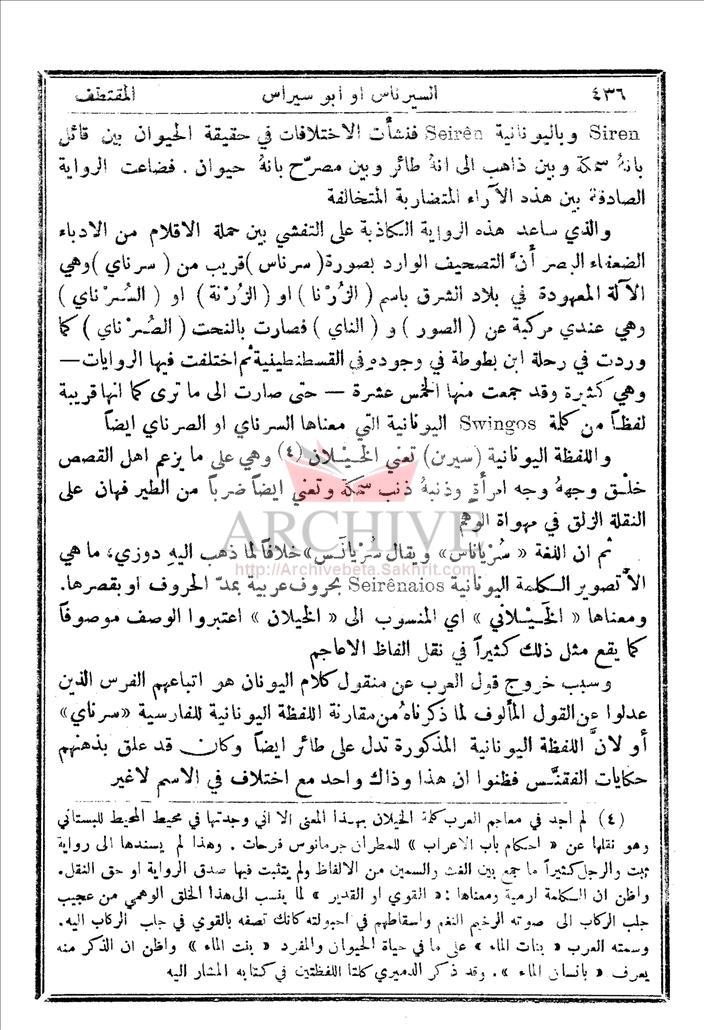 ٤٣٦ السيرناس او ابو سيراس المقتطف
Siren وباليونانية Seirên فنشأت الاختلافات في حقيقة الحيوان بين قائل
بانهُ سمكة وبين ذاهب الى انهُ طائر وبين مصرّح بانهُ حيوان . فضاعت الرواية
الصادقة بين هذه الآراء المتضاربة المتخالفة
والذي ساعد هذه الرواية الكاذبة على التفشي بين حملة الاقلام من الادباء
الضعفاء البصر أنَّ التصحيف الوارد بصورة ( سرناس ) قريب من ( سرناي ) وهي
الآلة المعهودة في بلاد الشرق باسم ( الزُرْنا ) او ( الزُرْنة ) او ( السُرْناي )
وهي عندي مركبة عن ( الصور ) و ( الناي ) فصارت بالنحت ( الصُرْناي ) كما
وردت في رحلة ابن بطوطة في وجوده في القسطنطينية ثم اختلفت فيها الروايات —
وهي كثيرة وقد جمعت منها الخمس عشرة — حتى صارت الى ما ترى كما انها قريبة
لفظاً من كلمة Swingos اليونانية التي معناها السرناي او الصرناي ايضاً
واللفظة اليونانية (سيرن) تعني الخَيْلان (٤) وهي على ما يزعم اهل القصص
خلْق وجههُ وجه امرأةٍ وذنبهُ ذنب سمكة وتعني ايضاً ضرباً من الطير فهان على
النقلة الزلق في مهواة الوهم
ثم ان اللغة « سُرْيَاناس » ويقال سُرْيَانَس » خلافاً لما ذهب اليهِ دوزي، ما هي
الاّ تصوير الكلمة اليونانية Seirênaios بحروف عربية بمدّ الحروف او بقصرها.
ومعناها « الخَيْلاني » اي المنسوب الى « الخيلان » اعتبروا الوصف موصوفاً
كما يقع مثل ذلك كثيراً في نقل الفاظ الاعاجم
وسبب خروج قول العرب عن منقول كلام اليونان هو اتباعهم الفرس الذين
عدلوا عن القول المألوف لما ذكرناه من مقارنة اللفظة اليونانية للفارسية «سرناي»
أو لانَّ اللفظة اليونانية المذكورة تدل على طائر ايضاً وكان قد علق بذهنهم
حكايات الفقنّس فظنوا ان هذا وذاك واحد مع اختلاف في الاسم لا غير
(٤) لم اجد في معاجم العرب كلمة الخيلان بهذا المعنى الا اني وجدتها في محيط المحيط للبستاني
وهو نقلها عن « احكام باب الاعراب » للمطران جرمانوس فرحات . وهذا لم يسندها الى رواية
ثبت والرجل كثيراً ما جمع بين الغث والسمين من الالفاظ ولم يتثبت فيها صدق الرواية او حق النقل.
واظن ان الكلمة ارمية ومعناها : « القوي او القدير » لما ينسب الى هذا الخلق الوهمي من عجيب
جلب الركاب الى صوته الرخيم النغم واسقاطهم في احبولته كانك تصفه بالقوي في جلب الركاب اليه.
وسمته العرب « بنات الماء » على ما في حياة الحيوان والمفرد « بنت الماء » واظن ان الذكر منه
يعرف « بانسان الماء ». وقد ذكر الدميري كلتا اللفظتين في كتابه المشار اليه
ARCHIVE
http://Archivebeta.Sakhrit.com